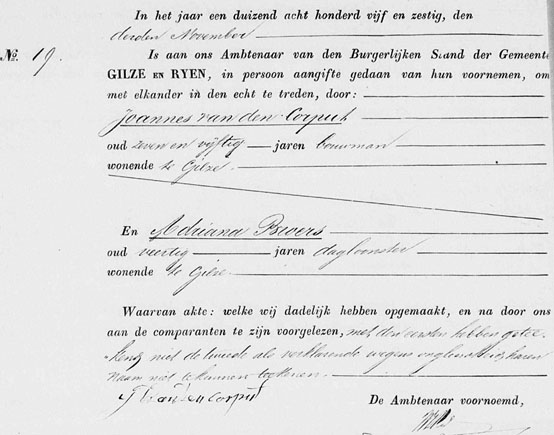 In het jaar een duizend acht honderd vijf en zestig, den
derden November
No. 19.
Is aan ons Ambtenaar van den Burgerlijken Stand der Gemeente
GILZE EN RYEN, in persoon aangifte gedaan van hun voornemen, om
met elkander in den echt te treden, door:
Joannes van den Corput
oud zeven en vijftig jaren bouwman
wonende te Gilze
En Adriana Broers
oud veertig jaren dagloonster
wonende te Gilze
Waarvan akte: welke wij dadelijk hebben opgemaakt, en na door ons
aan de comparanten te zijn voorgelezen, met den eersten hebben getee-
kend niet de tweede als verklarende wegens ongeleerdheid haren
naam niet te kunnen teekenen.
J van den Corput
De Ambtenaar voornoemd,